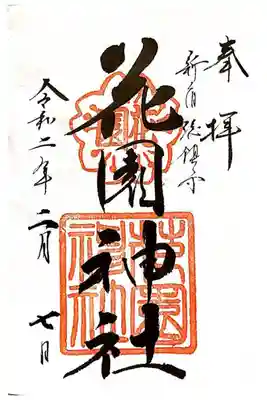 奉拝
新宿総鎮守
花園神社
令和二年二月七日
花園
神社